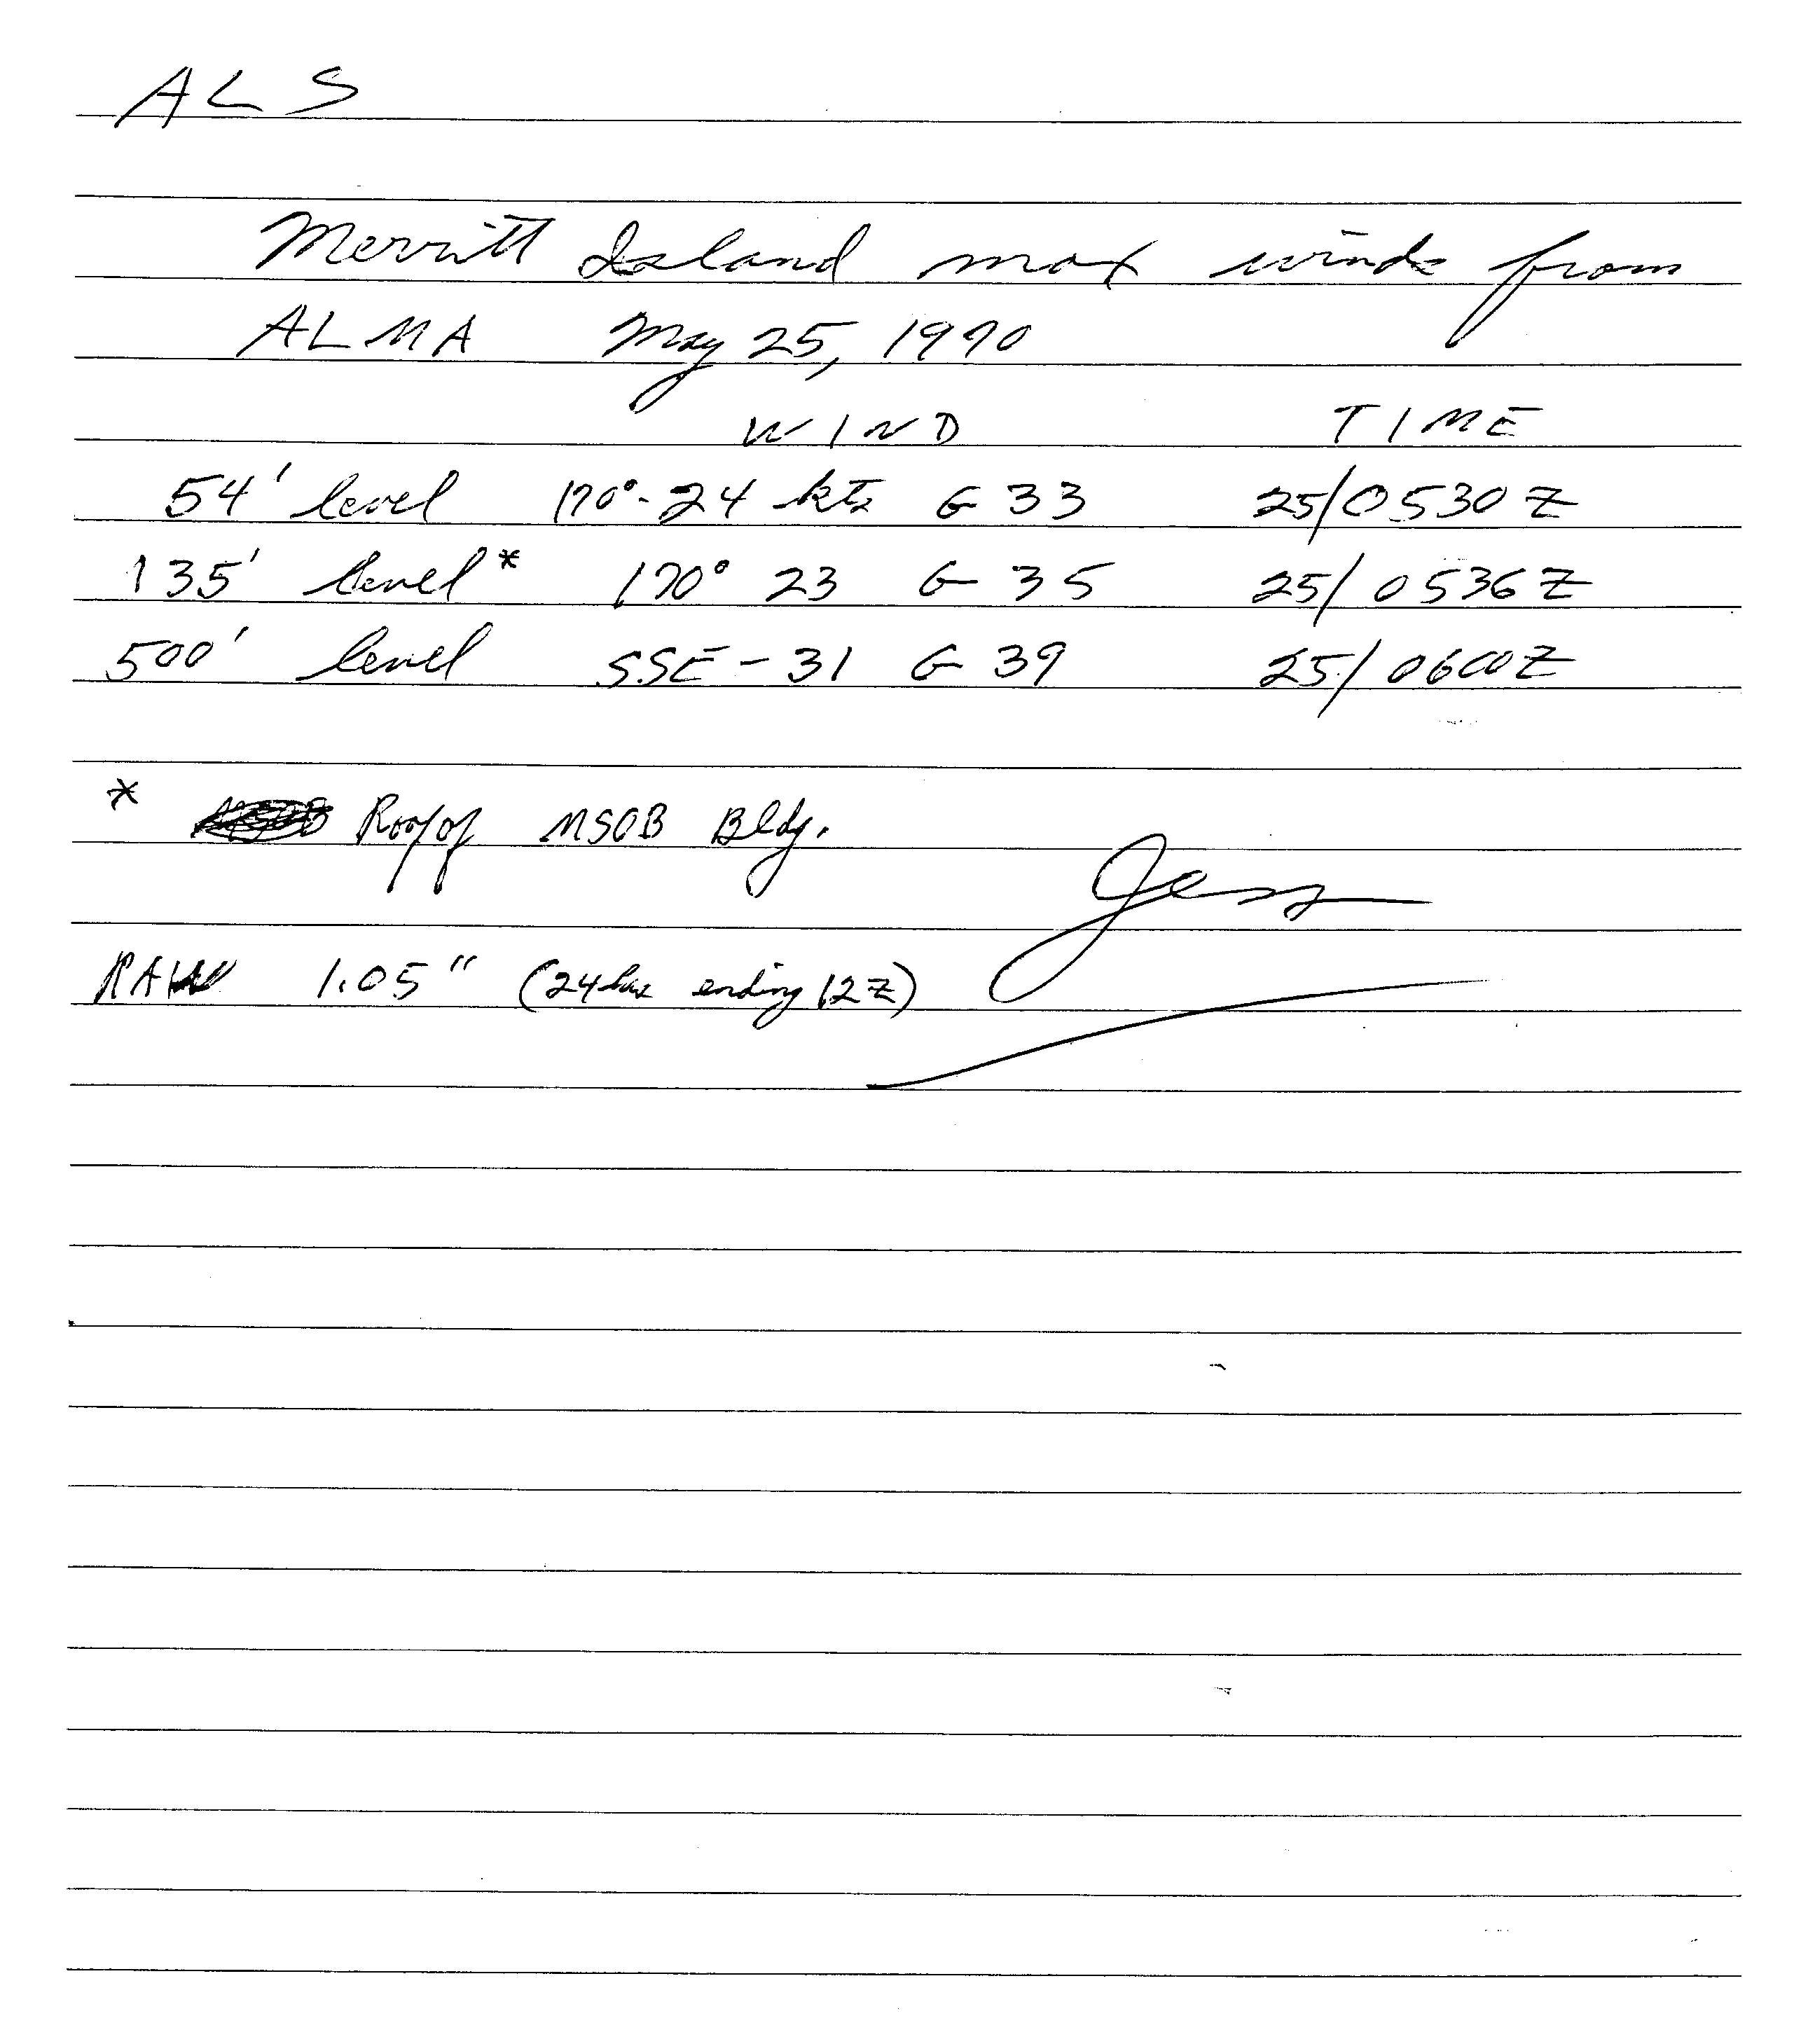 ALS
Merritt Island max winds from
ALMA May 25, 1970
WIND TIME
54' level 170°-24 kts G 33 25/0530Z
135' level* 170° 23 G 35 25/0536Z
500' level SSE-31 G 39 25/0600Z
* Roof of MSOB Bldg.
Jess
RAIN 1.05" (24 hrs ending 12Z)